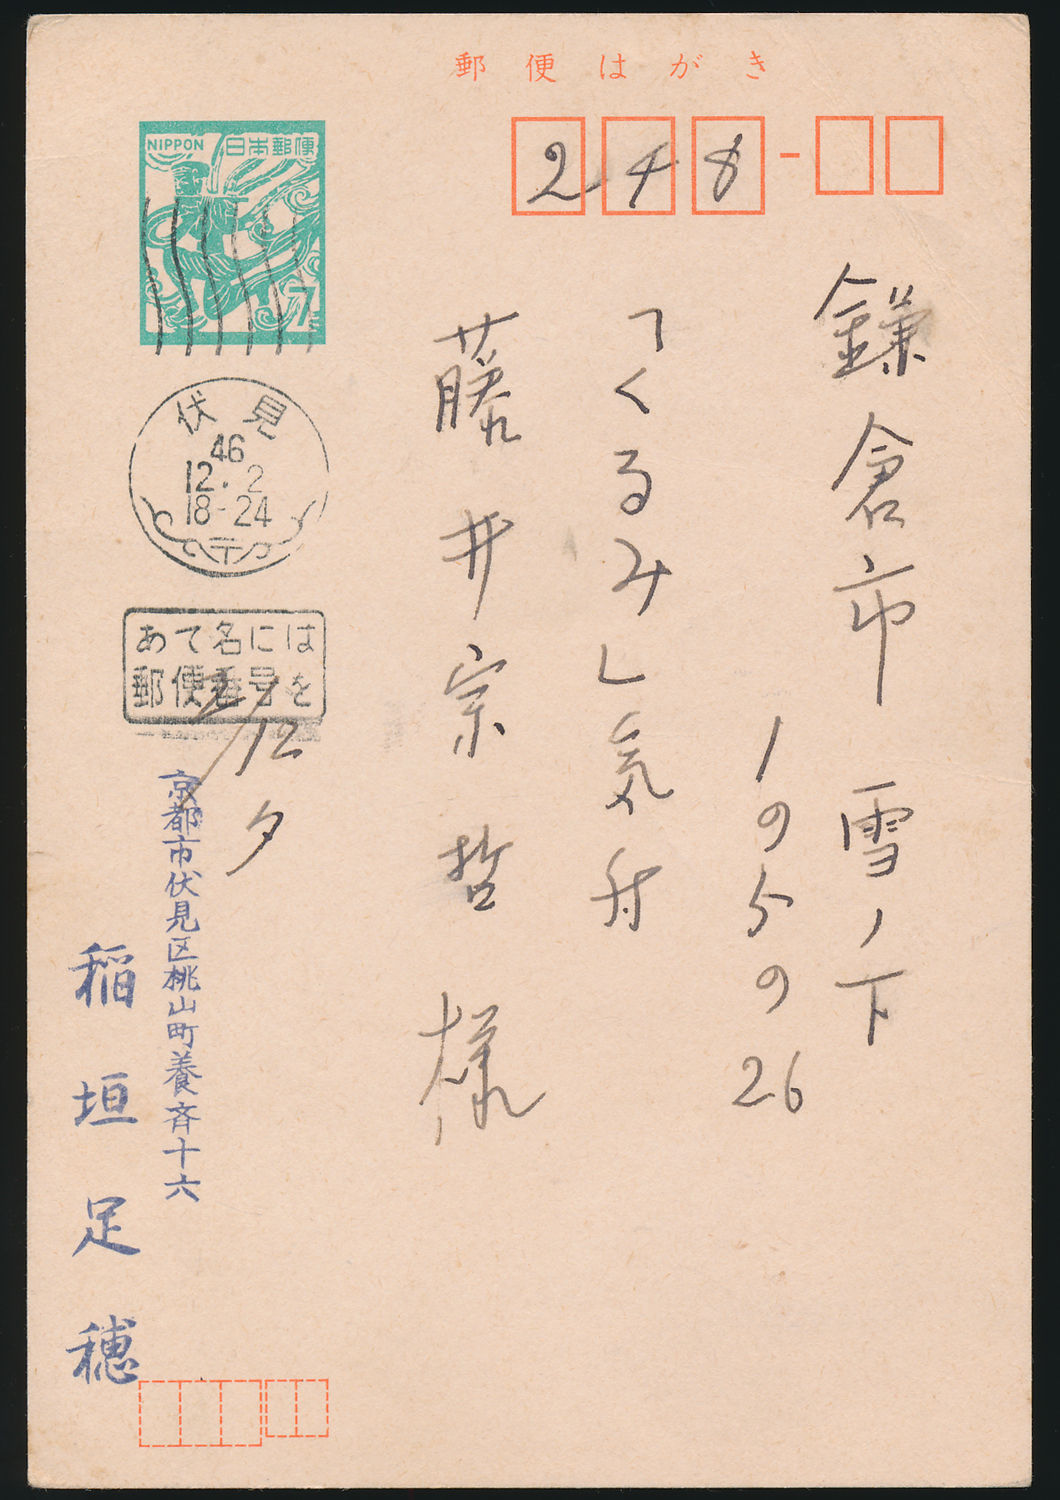 郵便はがき
NIPPON 日本郵便
7
248
鎌倉市 雪ノ下
1の5の26
「くるみ」気付
藤井宗哲様
伏見
46
12.2
18-24
〒
あて名には
郵便番号を
2/12 夕
京都市伏見区桃山町養斉十六
稲垣足穂